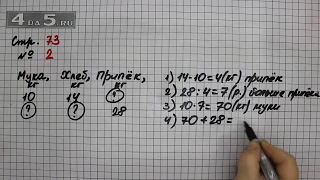 4DA5.RU
Стр. 73
№ 2
Мука, кг Хлеб, кг Припёк, кг
10 14 ?
? ? 28
1) 14-10=4(кг) припёк
2) 28:4=7(р.) больше припёка
3) 10·7=70(кг) муки
4) 70+28=